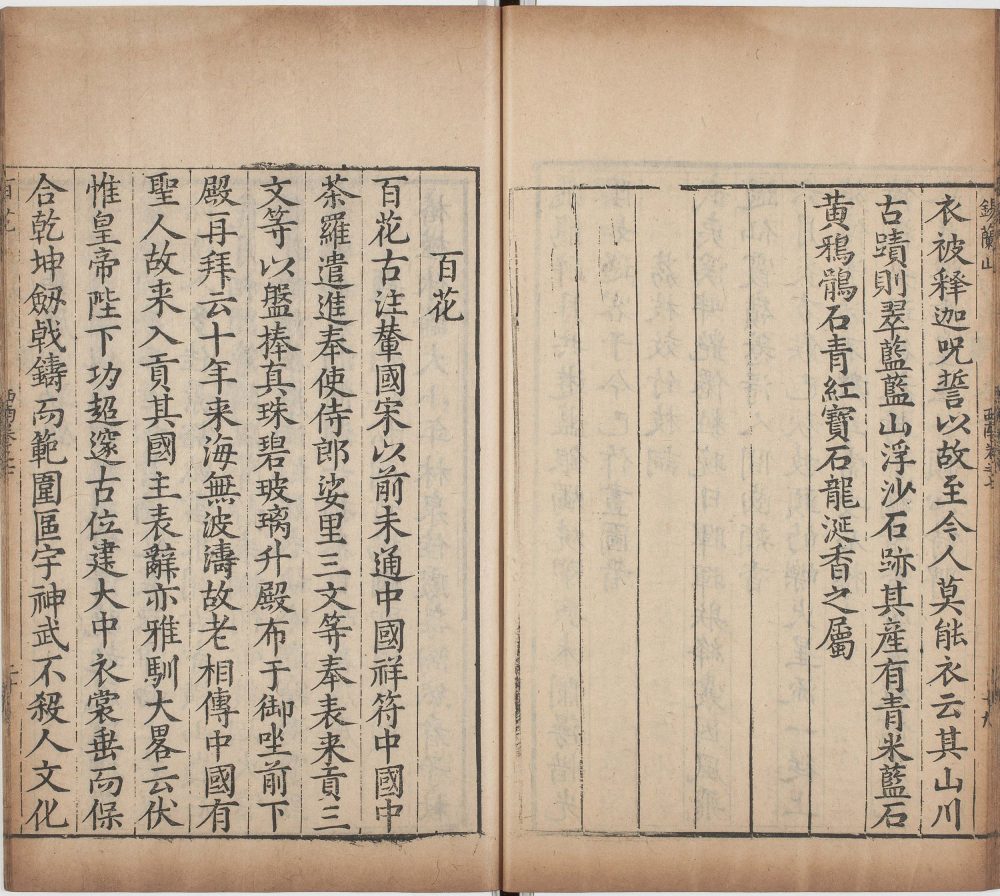 錫蘭山
衣被釋迦呪誓以故至今人莫能衣云其山川
古蹟則翠藍藍山浮沙石跡其産有青米藍石
黄鴉鶻石青紅寶石龍涎香之屬
百花
百花古注輦國宋以前未通中國祥符中國中
茶羅遣進奉使侍郎娑里三文等奉表来貢三
文等以盤捧真珠碧玻璃升殿布于御坐前下
殿再拜云十年来海無波濤故老相傳中國有
聖人故来入貢其國主表辭亦雅馴大畧云伏
惟皇帝陛下功超邃古位建大中衣裳垂而保
合乾坤劔戟鑄而範圍區宇神武不殺人文化
百花